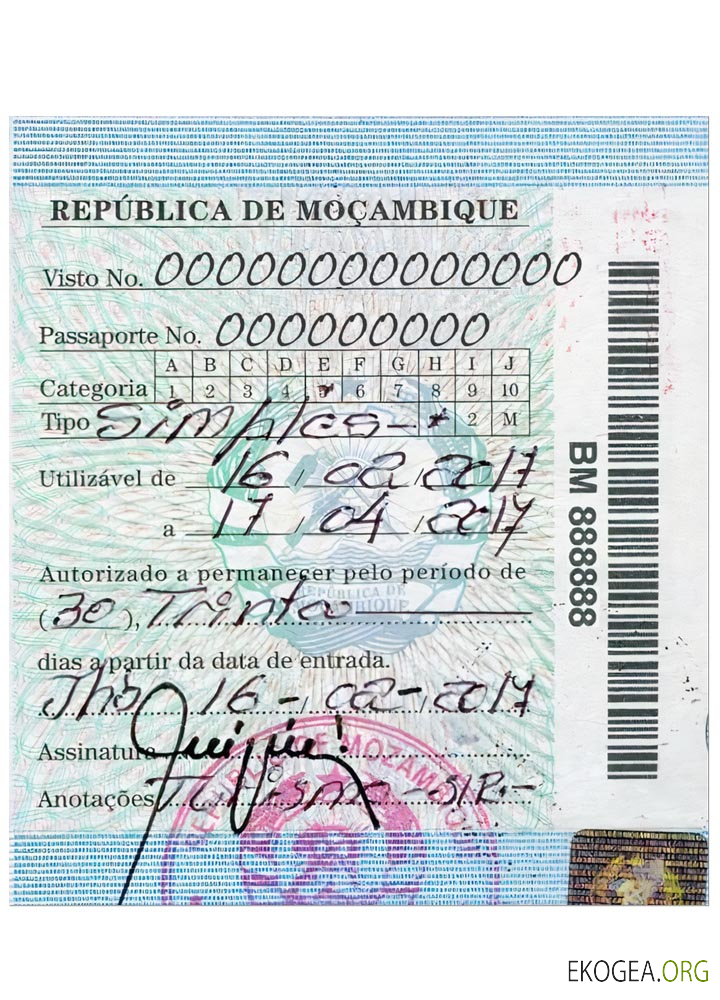 REPÚBLICA DE MOÇAMBIQUE
Visto No. 00000000000000
Passaporte No. 000000000
A B C D E F G H I J
Categoria 1 2 3 4 5 6 7 8 9 10
Tipo Simples - * 2 M
Utilizável de 16 / 02 / 2017
a 17 / 04 / 2017
Autorizado a permanecer pelo período de
(30), Trinta
dias a partir da data de entrada.
16 - 02 - 2017
Assinatura
Anotações
REPÚBLICA DE
BM 888888
EKOGEA.ORG